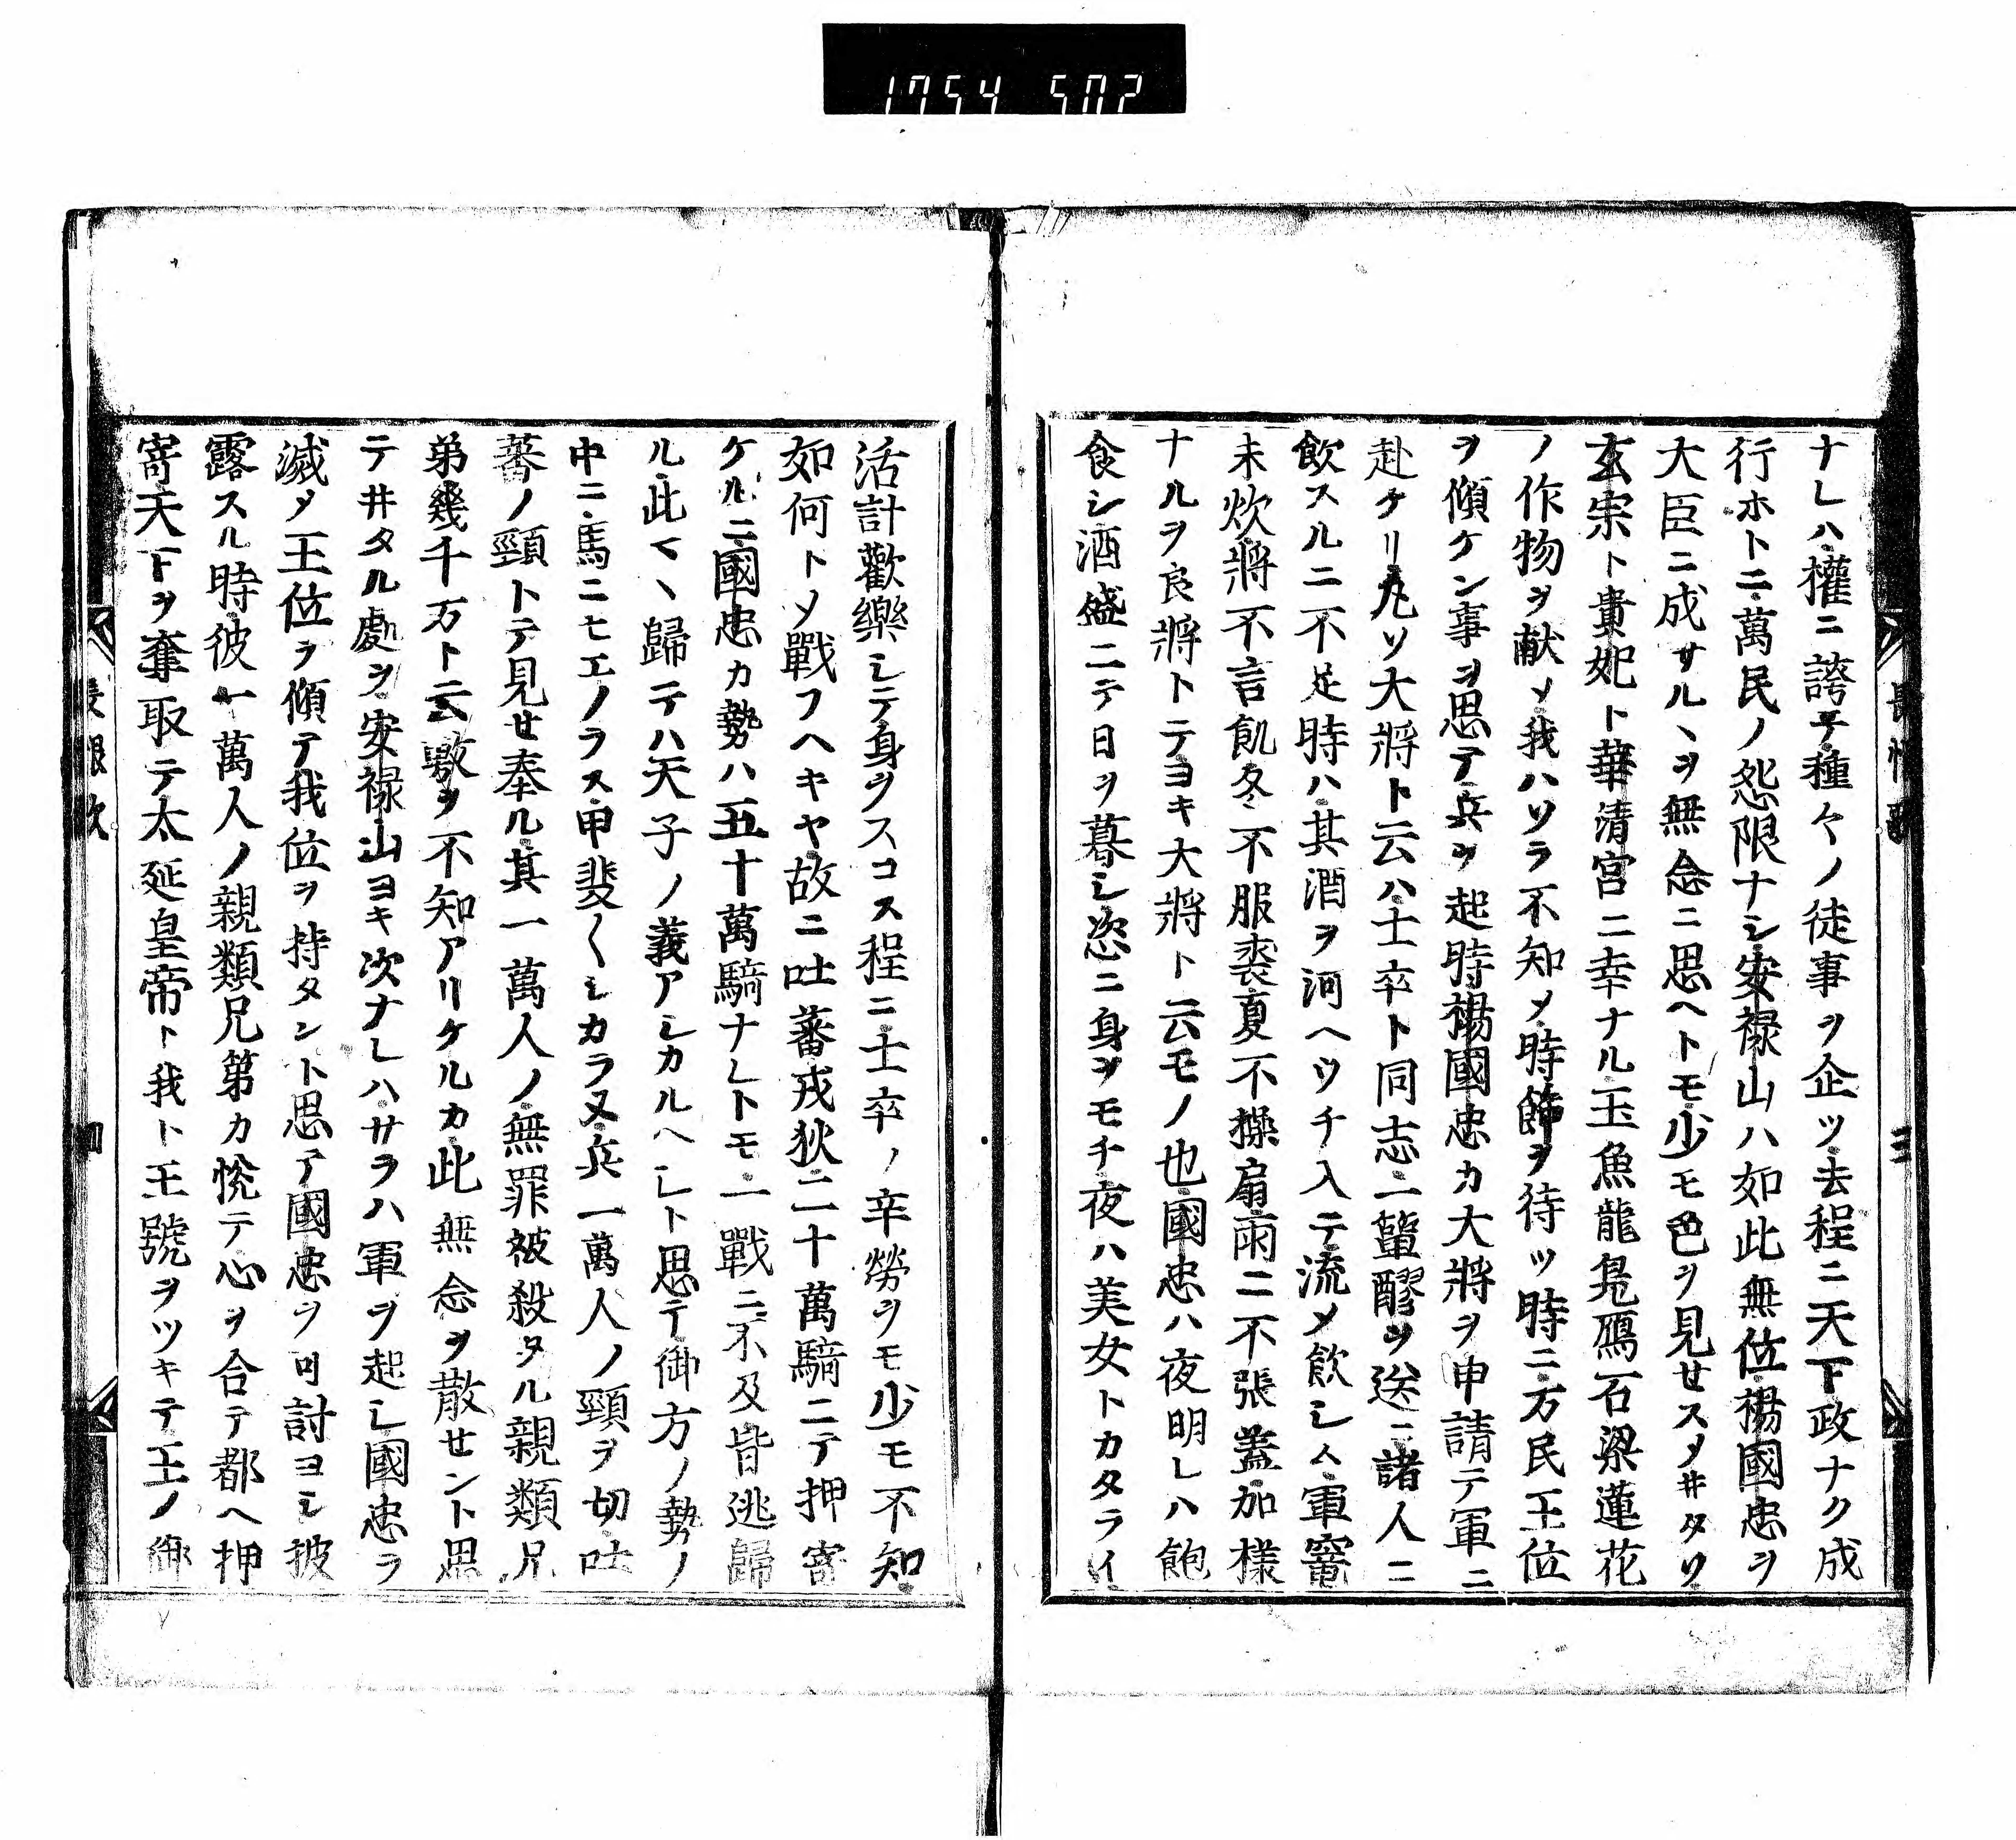 1754 502
長恨歌 三
ナレハ權ニ誇テ種々ノ徒事ヲ企ツ去程ニ天下政ナク成
行ホトニ萬民ノ怨限ナシ安禄山ハ如此無位楊國忠ヲ
大臣ニ成サルヽヲ無念ニ思ヘトモ少モ色ヲ見せスメ井タリ
玄宗ト貴妃ト華清宮ニ幸ナル玉魚龍鳬鴈石梁蓮花
ノ作物ヲ献メ我ハソラ不知メ時節ヲ待ツ時ニ万民王位
ヲ傾ケン事ヲ思テ兵ヲ起時楊國忠カ大將ヲ申請テ軍ニ
赴ケリ凡ソ大將ト云ハ士卒ト同志一簞醪ヲ送ニ諸人ニ
飲スルニ不足時ハ其酒ヲ河ヘウチ入テ流メ飲シム軍竈
未炊將不言飢冬不服裘夏不操扇雨ニ不張蓋加樣
ナルヲ良將トテヨキ大將ト云モノ也國忠ハ夜明レハ飽
食シ酒盛ニテ日ヲ暮シ恣ニ身ヲモチ夜ハ美女トカタライ
活計歡樂シテ身ヲスコス程ニ士卒ノ辛勞ヲモ少モ不知
如何トメ戰フヘキヤ故ニ吐蕃戎狄二十萬騎ニテ押寄
ケルニ國忠カ勢ハ五十萬騎ナレトモ一戰ニ不及皆逃歸
ル此マヽ歸テハ天子ノ義アシカルヘシト思テ御方ノ勢ノ
中ニ馬ニモエノラス甲斐〱シカラヌ兵一萬人ノ頸ヲ切吐
蕃ノ頸トテ見せ奉ル其一萬人ノ無罪被殺タル親類兄
弟幾千万ト云數ヲ不知アリケルカ此無念ヲ散せント思
テ井タル處ヲ安禄山ヨキ次ナレハサラハ軍ヲ起シ國忠ヲ
滅メ王位ヲ傾テ我位ヲ持タント思テ國忠ヲ可討ヨシ披
露スル時彼一萬人ノ親類兄第カ悦テ心ヲ合テ都ヘ押
寄天下ヲ奪取テ太延皇帝ト我ト王號ヲツキテ王ノ御
長恨歌 四